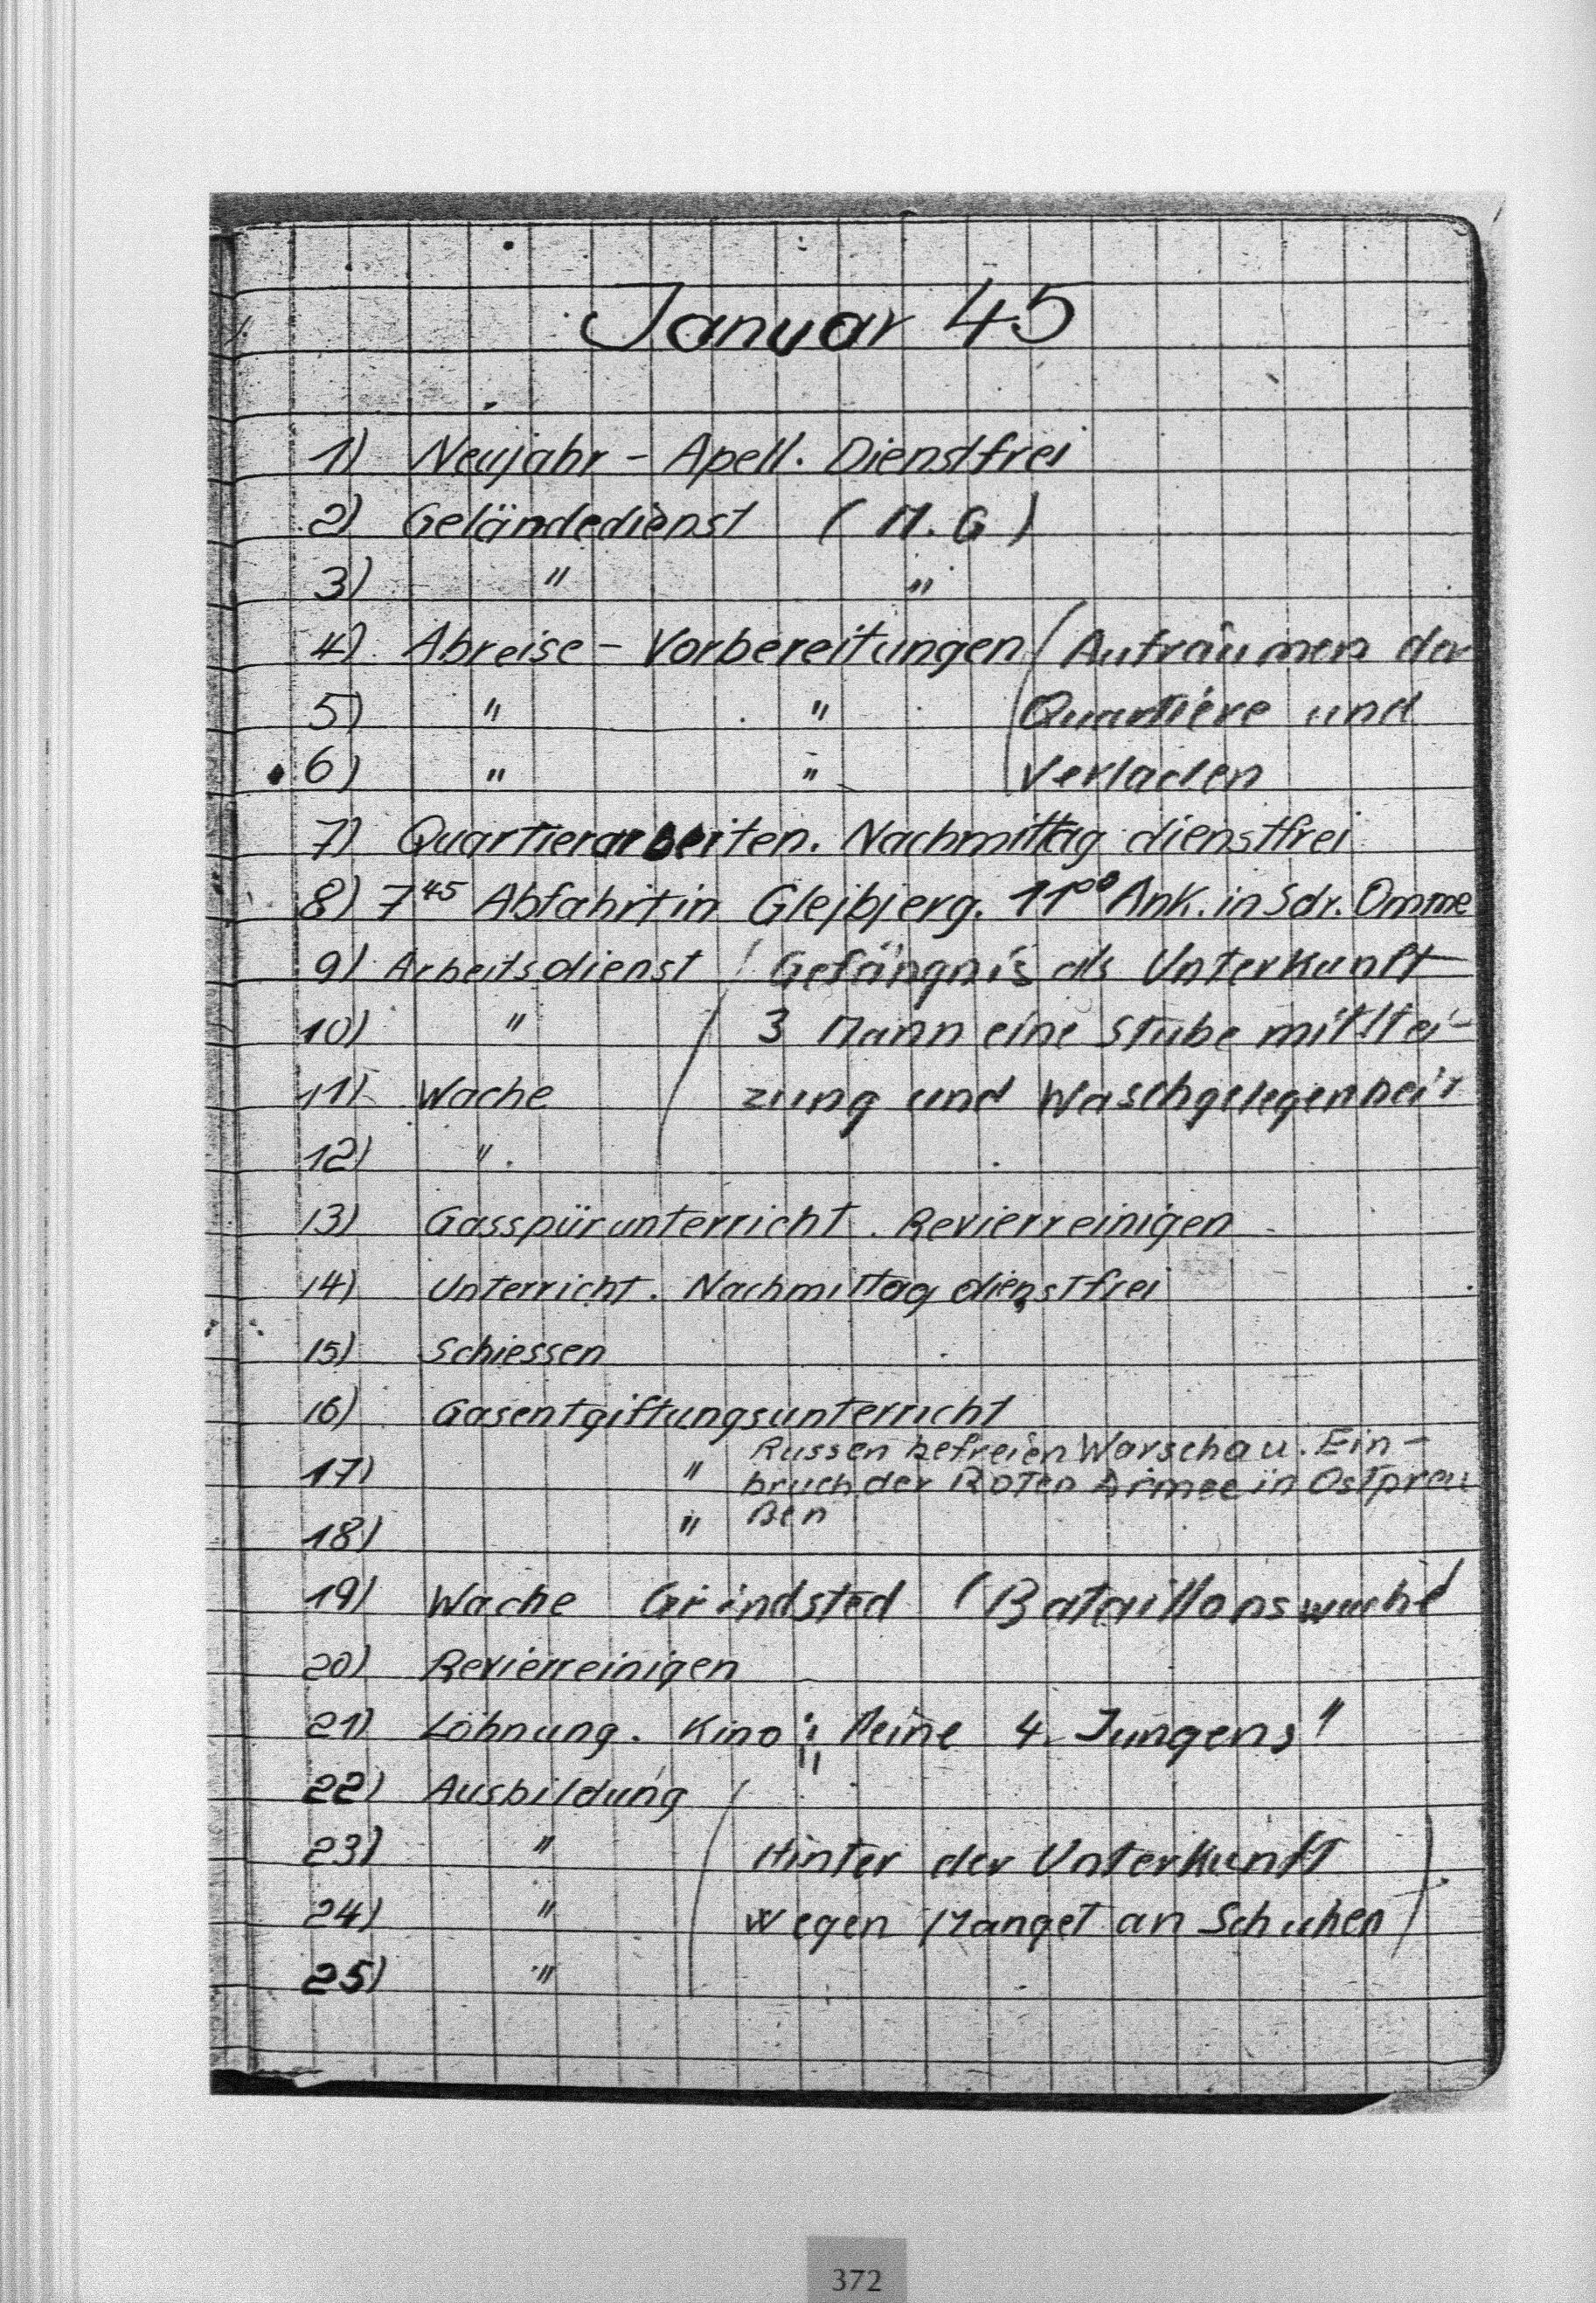 Januar 45
1) Neujahr - Apell. Dienstfrei
2) Geländedienst (M.G)
3) " "
4) Abreise - Vorbereitungen (Aufräumen der
5) " " Quartiere und
6) " " Verladen
7) Quartierarbeiten. Nachmittag dienstfrei
8) 7 45 Abfahrt in Glejbjerg. 11 00 Ank. in Sdr. Omme
9) Arbeitsdienst ( Gefängnis als Unterkunft
10) " 3 Mann eine Stube mit Hei-
11) Wache zung und Waschgelegenheit
12) "
13) Gasspürunterricht. Revierreinigen
14) Unterricht. Nachmittag dienstfrei
15) Schiessen
16) Gasentgiftungsunterricht
Russen befreien Warschau. Ein-
17) " bruch der Roten Armee in Ostpreu
18) " ßen
19) Wache Grindsted (Bataillonswache)
20) Revierreinigen
21) Löhnung. Kino: "Meine 4 Jungens"
22) Ausbildung (
23) " Hinter der Unterkunft
24) " wegen Mangel an Schuhen)
25) "
372